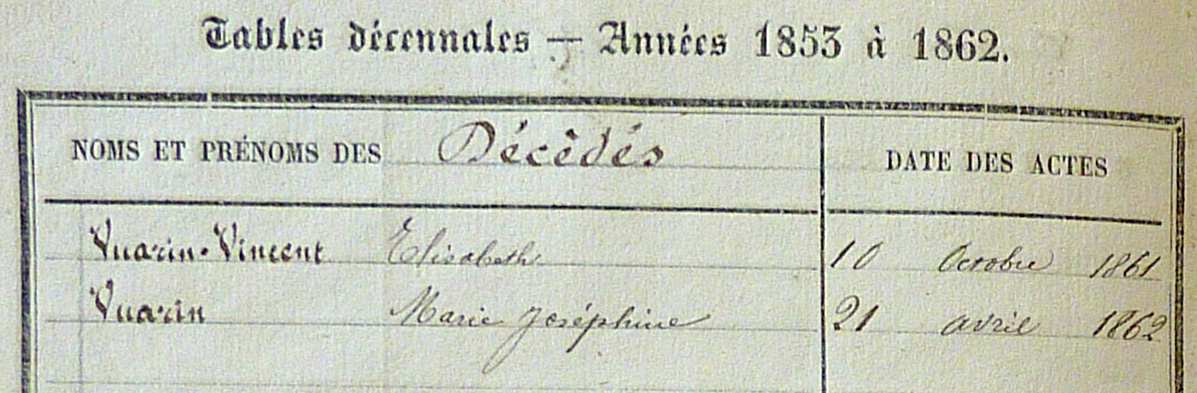 Tables décennales — Années 1853 à 1862.
NOMS ET PRÉNOMS DES Décédés DATE DES ACTES
Vuarin-Vincent Elisabeth 10 Octobre 1861
Vuarin Marie Joséphine 21 avril 1862